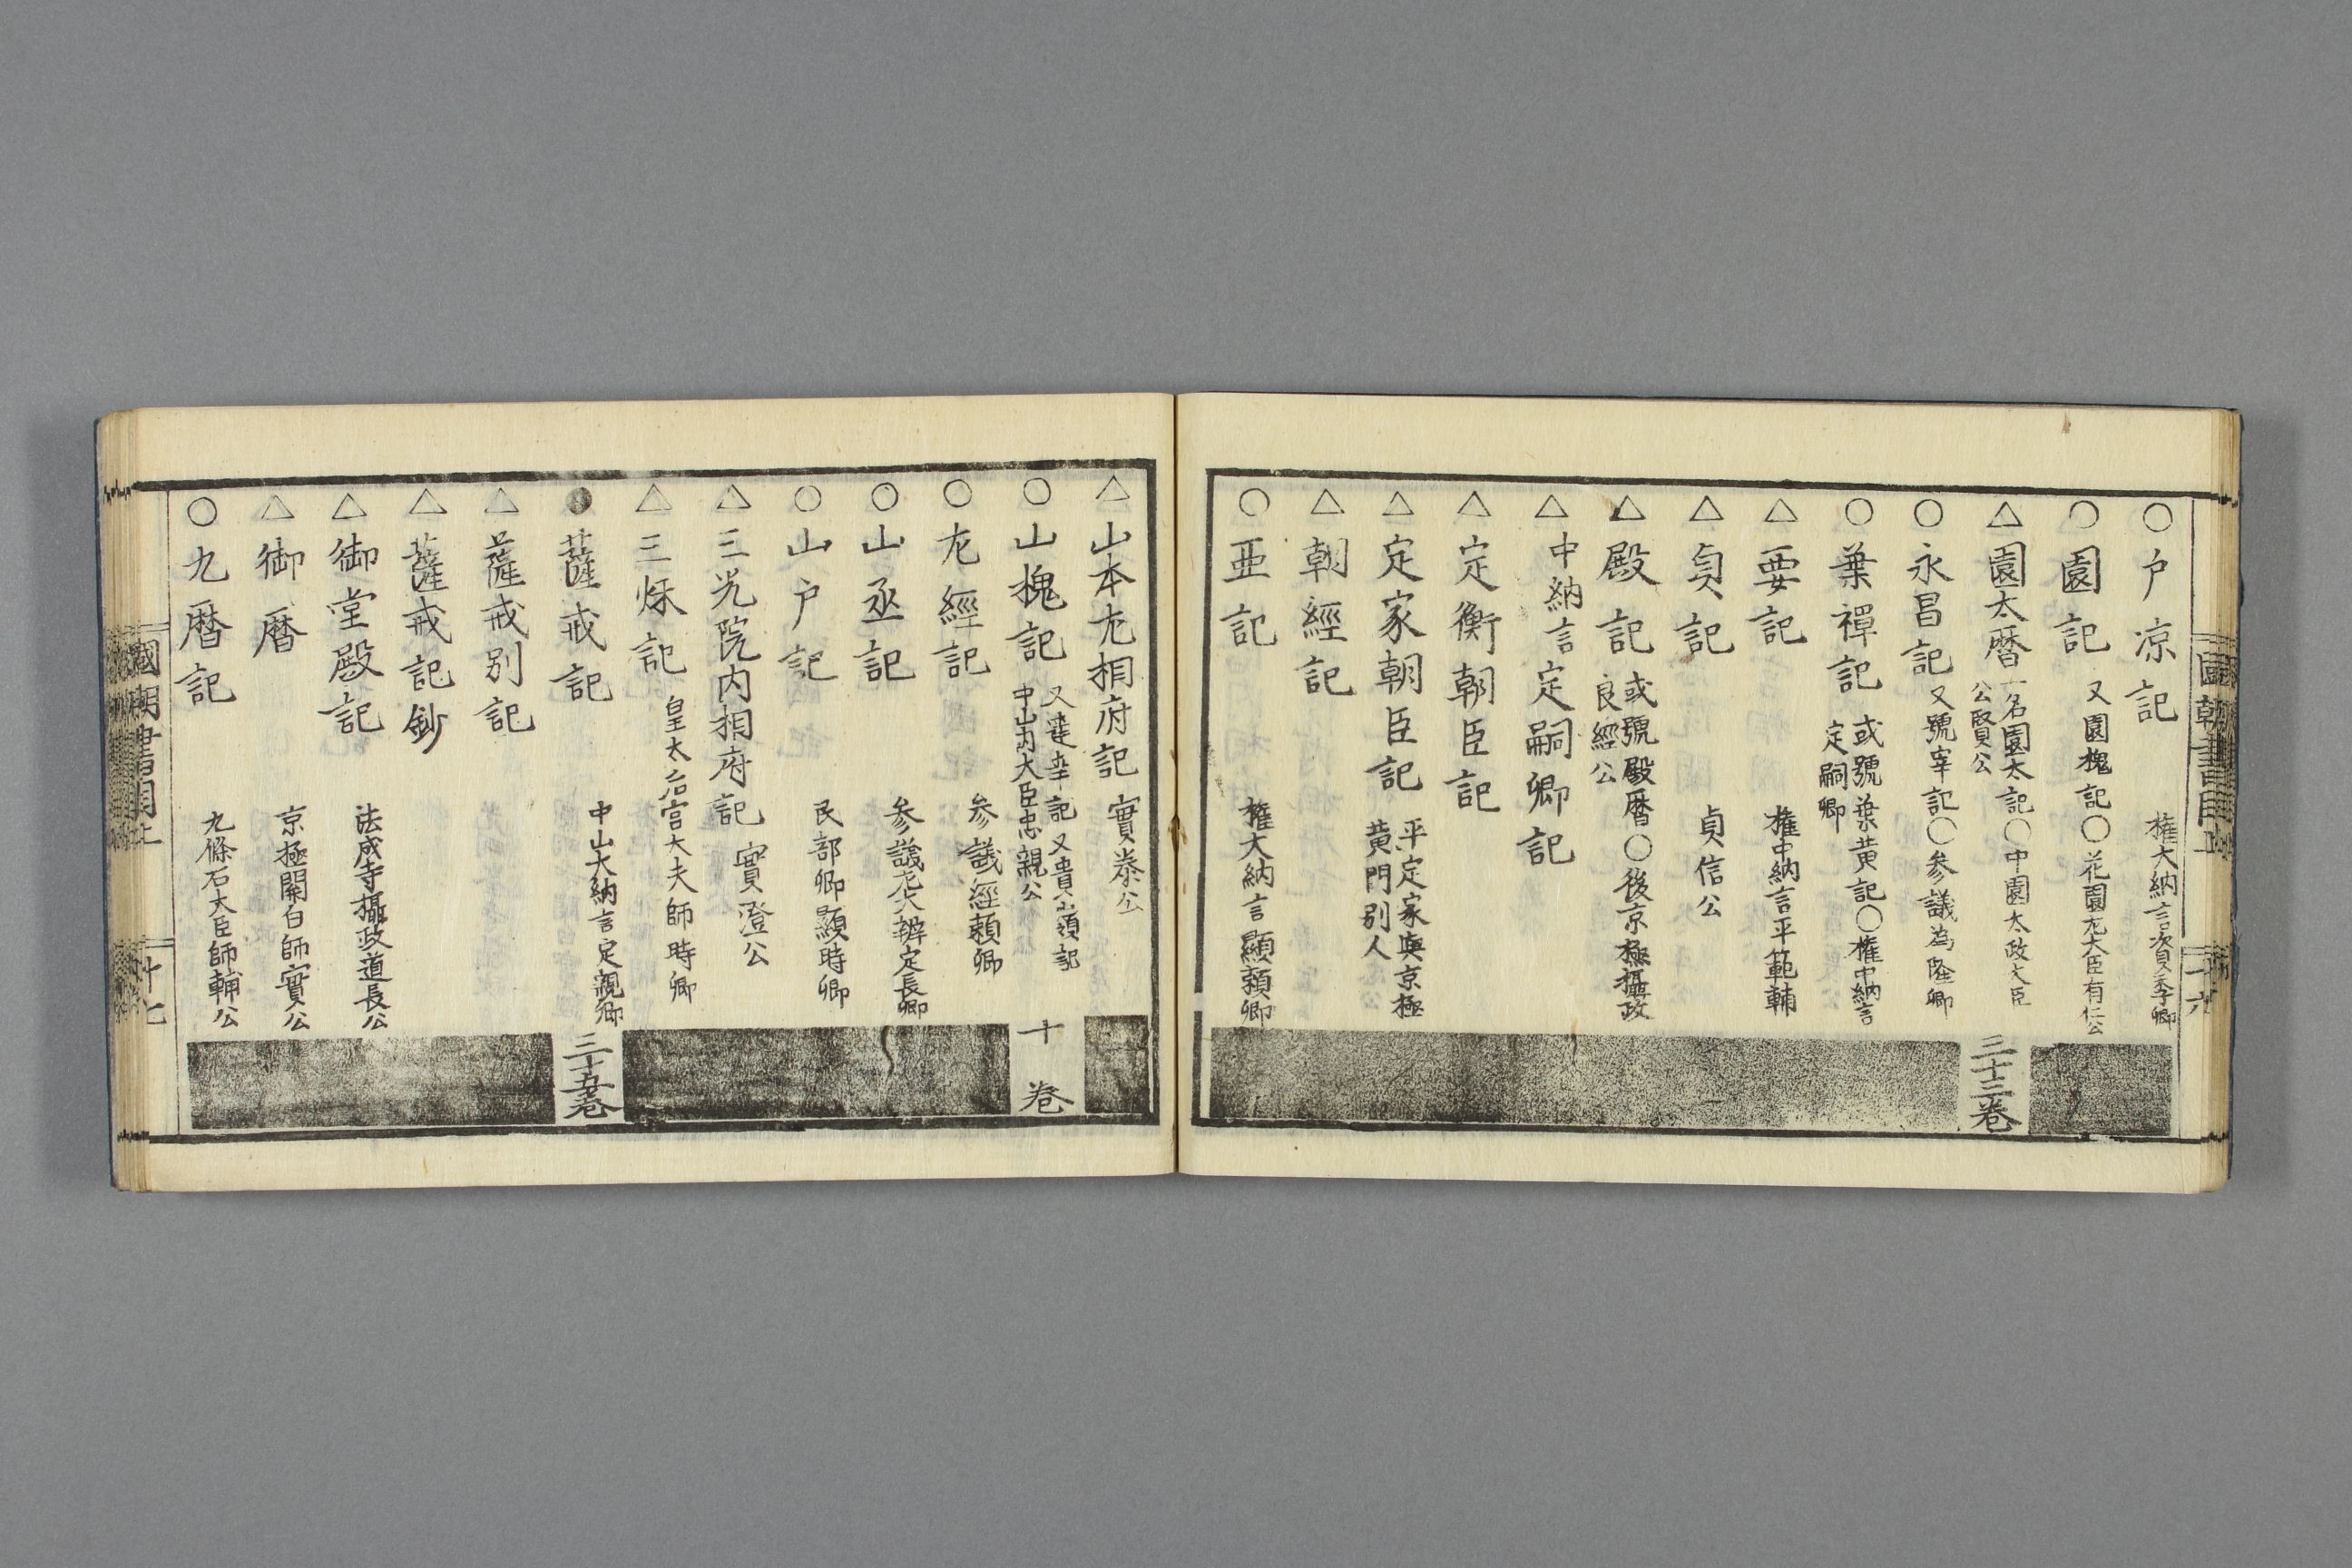 ○戸凉記 權大納言資季卿
○園記 又園槐記○花園左大臣有仁公
△園太暦 一名園太記○中園太政大臣公賢公 三十三卷
○永昌記 又號宰記○參議為隆卿
○葉禪記 或號葉黄記○權中納言定嗣卿
△要記 權中納言平範輔
△貞記 貞信公
△殿記 或號殿暦○後京極攝政良經公
△中納言定嗣卿記
△定衡朝臣記
△定家朝臣記 平定家與京極黄門別人
△朝經記
○亜記 權大納言顯頼卿
△山本左相府記 實泰公
○山槐記 又達幸記又貴嶺記中山内大臣忠親公 十卷
○左經記 參議經頼卿
○山丞記 參議左大辨定長卿
○山戸記 民部卿顯時卿
△三光院内相府記 實澄公
△三秌記 皇太后宮大夫師時卿
●薩戒記 中山大納言定親卿 三十五卷
△薩戒別記
△薩戒記鈔
△御堂殿記 法成寺攝政道長公
△御暦 京極關白師實公
○九暦記 九條右大臣師輔公
國朝書目上
十六
國朝書目上
十七